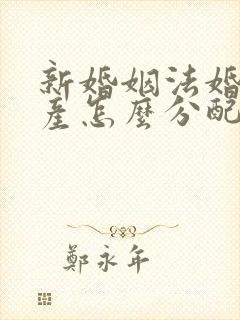 新婚姻法婚
產怎麼分配
鄭永年